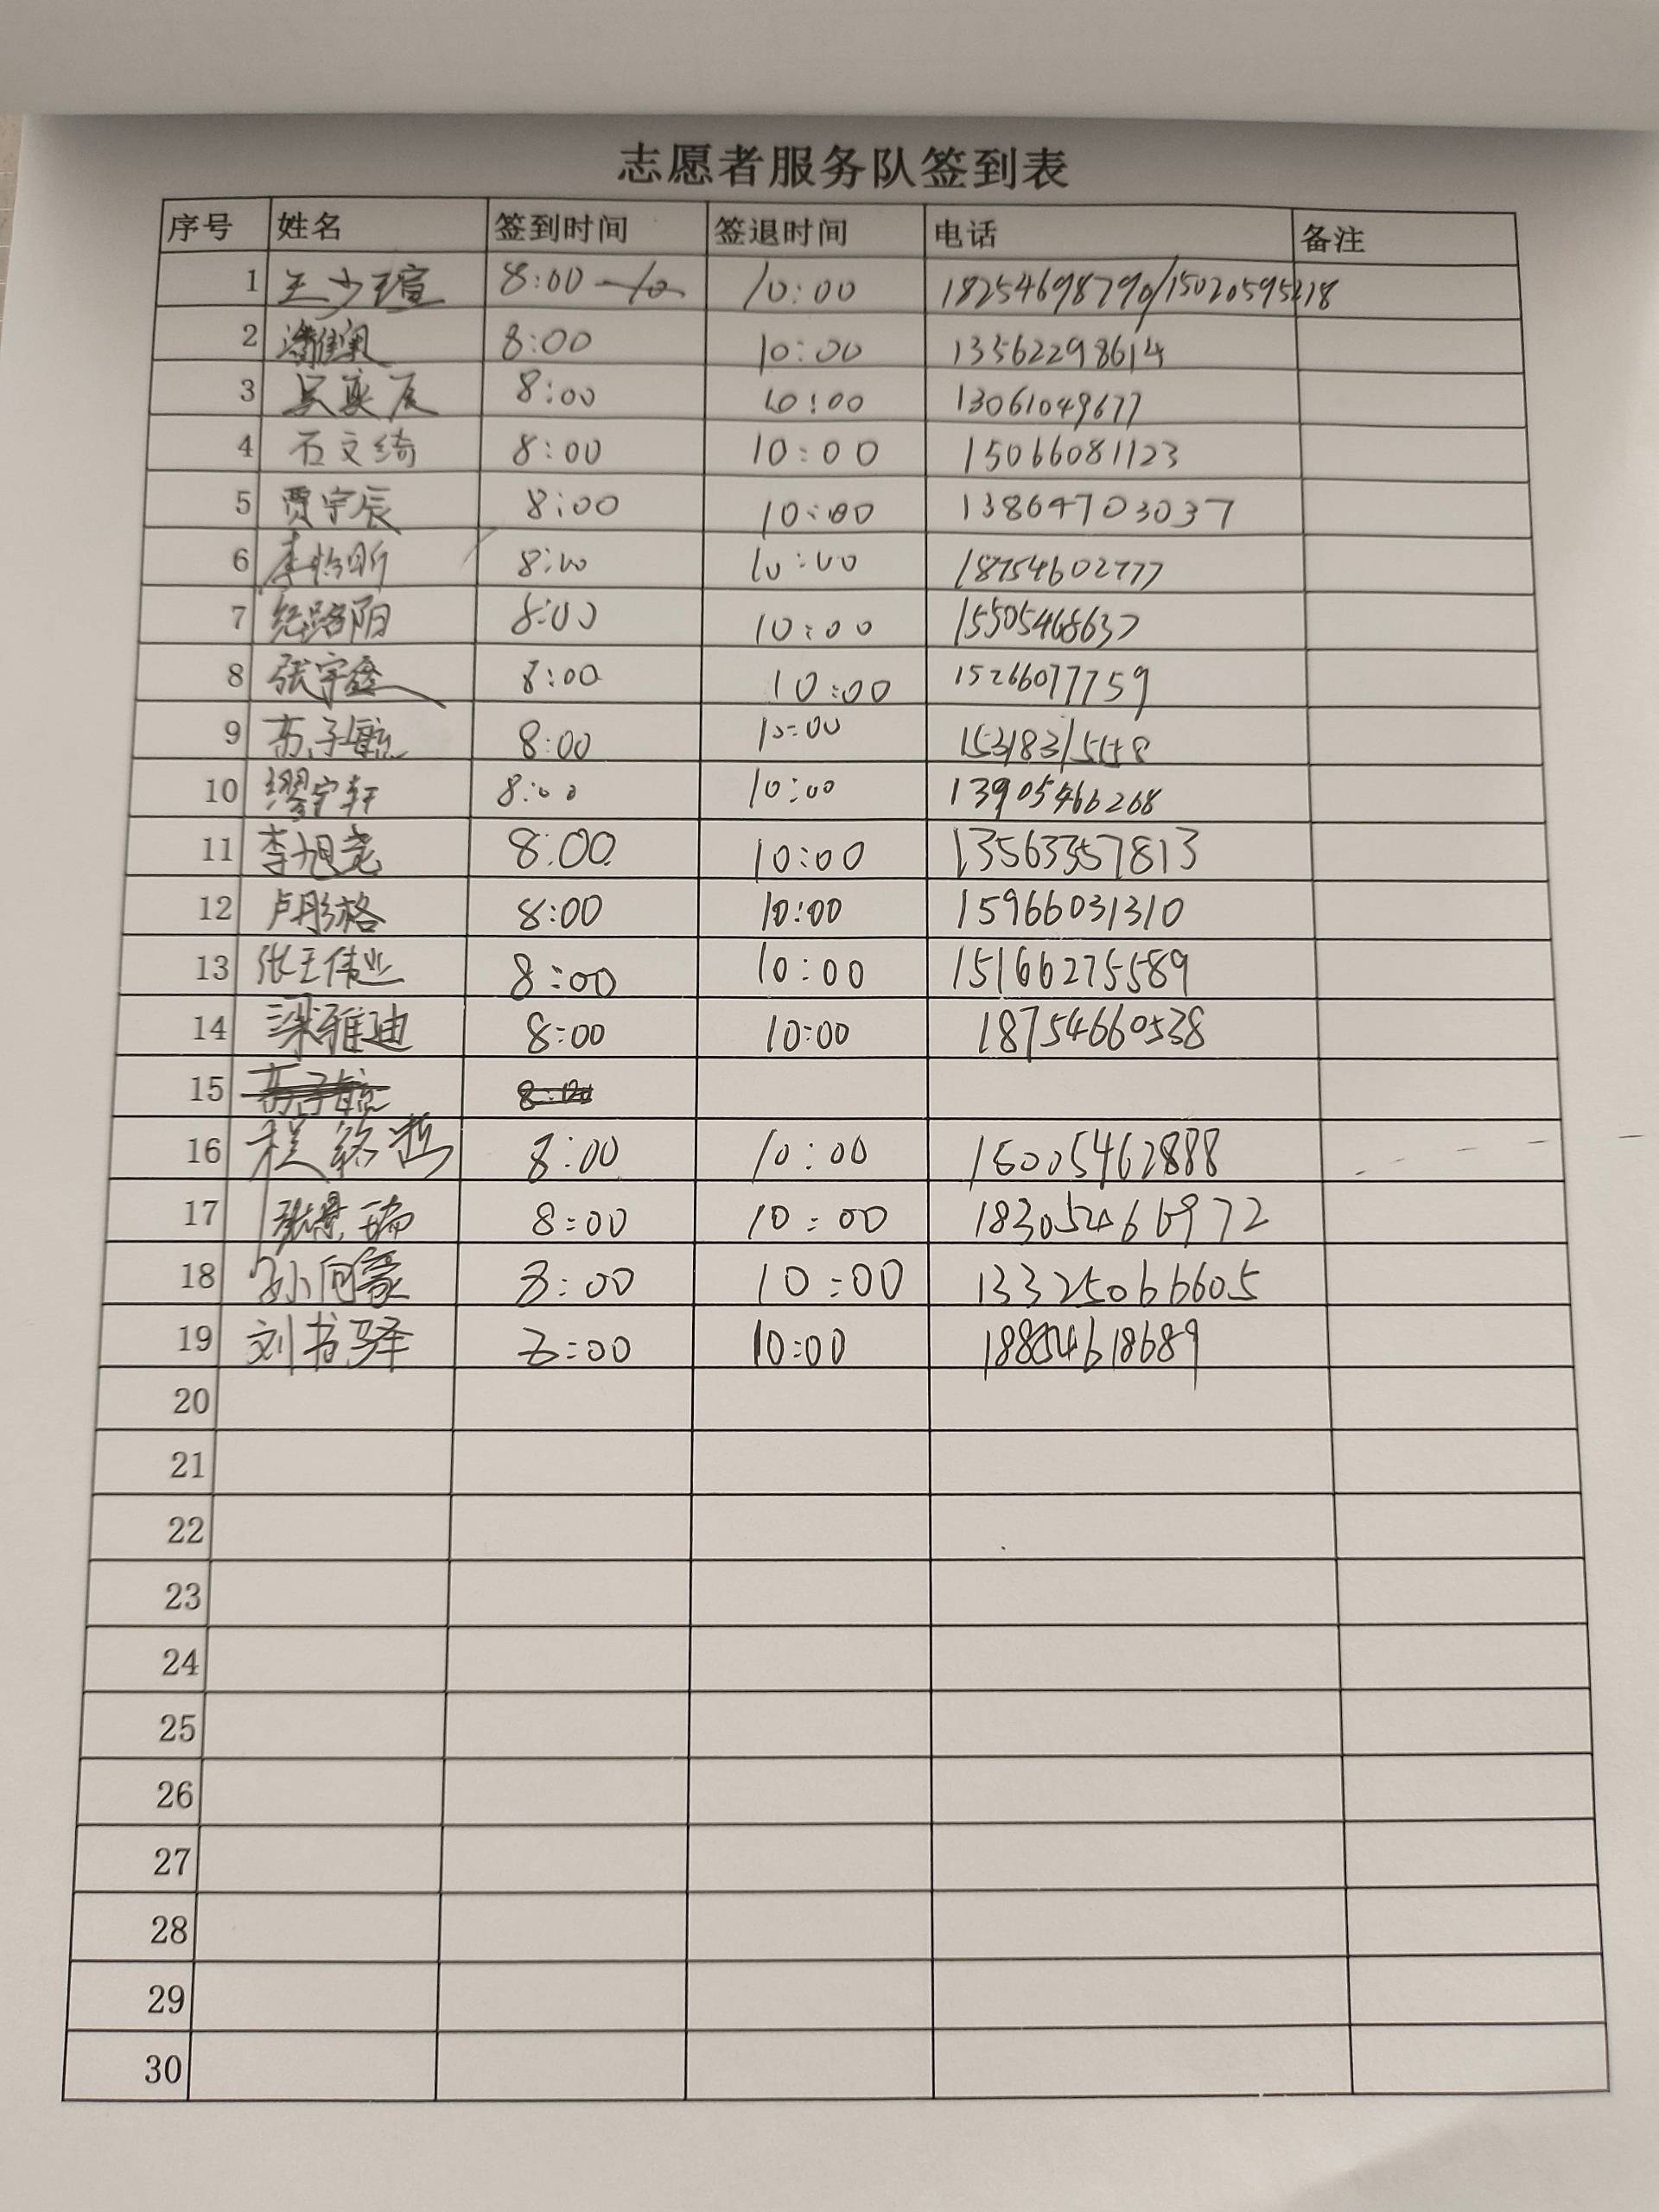 志愿者服务队签到表
序号 姓名 签到时间 签退时间 电话 备注
1 王少瑄 8:00 10:00 18254698790/15020595218
2 8:00 10:00 13562298614
3 8:00 10:00 13061049677
4 石文绮 8:00 10:00 15066081123
5 贾宇辰 8:00 10:00 13864703037
6 李怡昕 8:00 10:00 18754602777
7 纪路阳 8:00 10:00 15505468637
8 张宇鑫 8:00 10:00 15266077759
9 苏子毓 8:00 10:00
10 缪宇轩 8:00 10:00 13905466268
11 李旭尧 8:00 10:00 13563357813
12 卢彤格 8:00 10:00 15966031310
13 张王伟业 8:00 10:00 15166275589
14 梁雅迪 8:00 10:00 18754660538
15
16 8:00 10:00 15005462888
17 张景瑞 8:00 10:00 18305466972
18 孙向豪 8:00 10:00 13325066605
19 刘书驿 8:00 10:00 18854618689
20
21
22
23
24
25
26
27
28
29
30